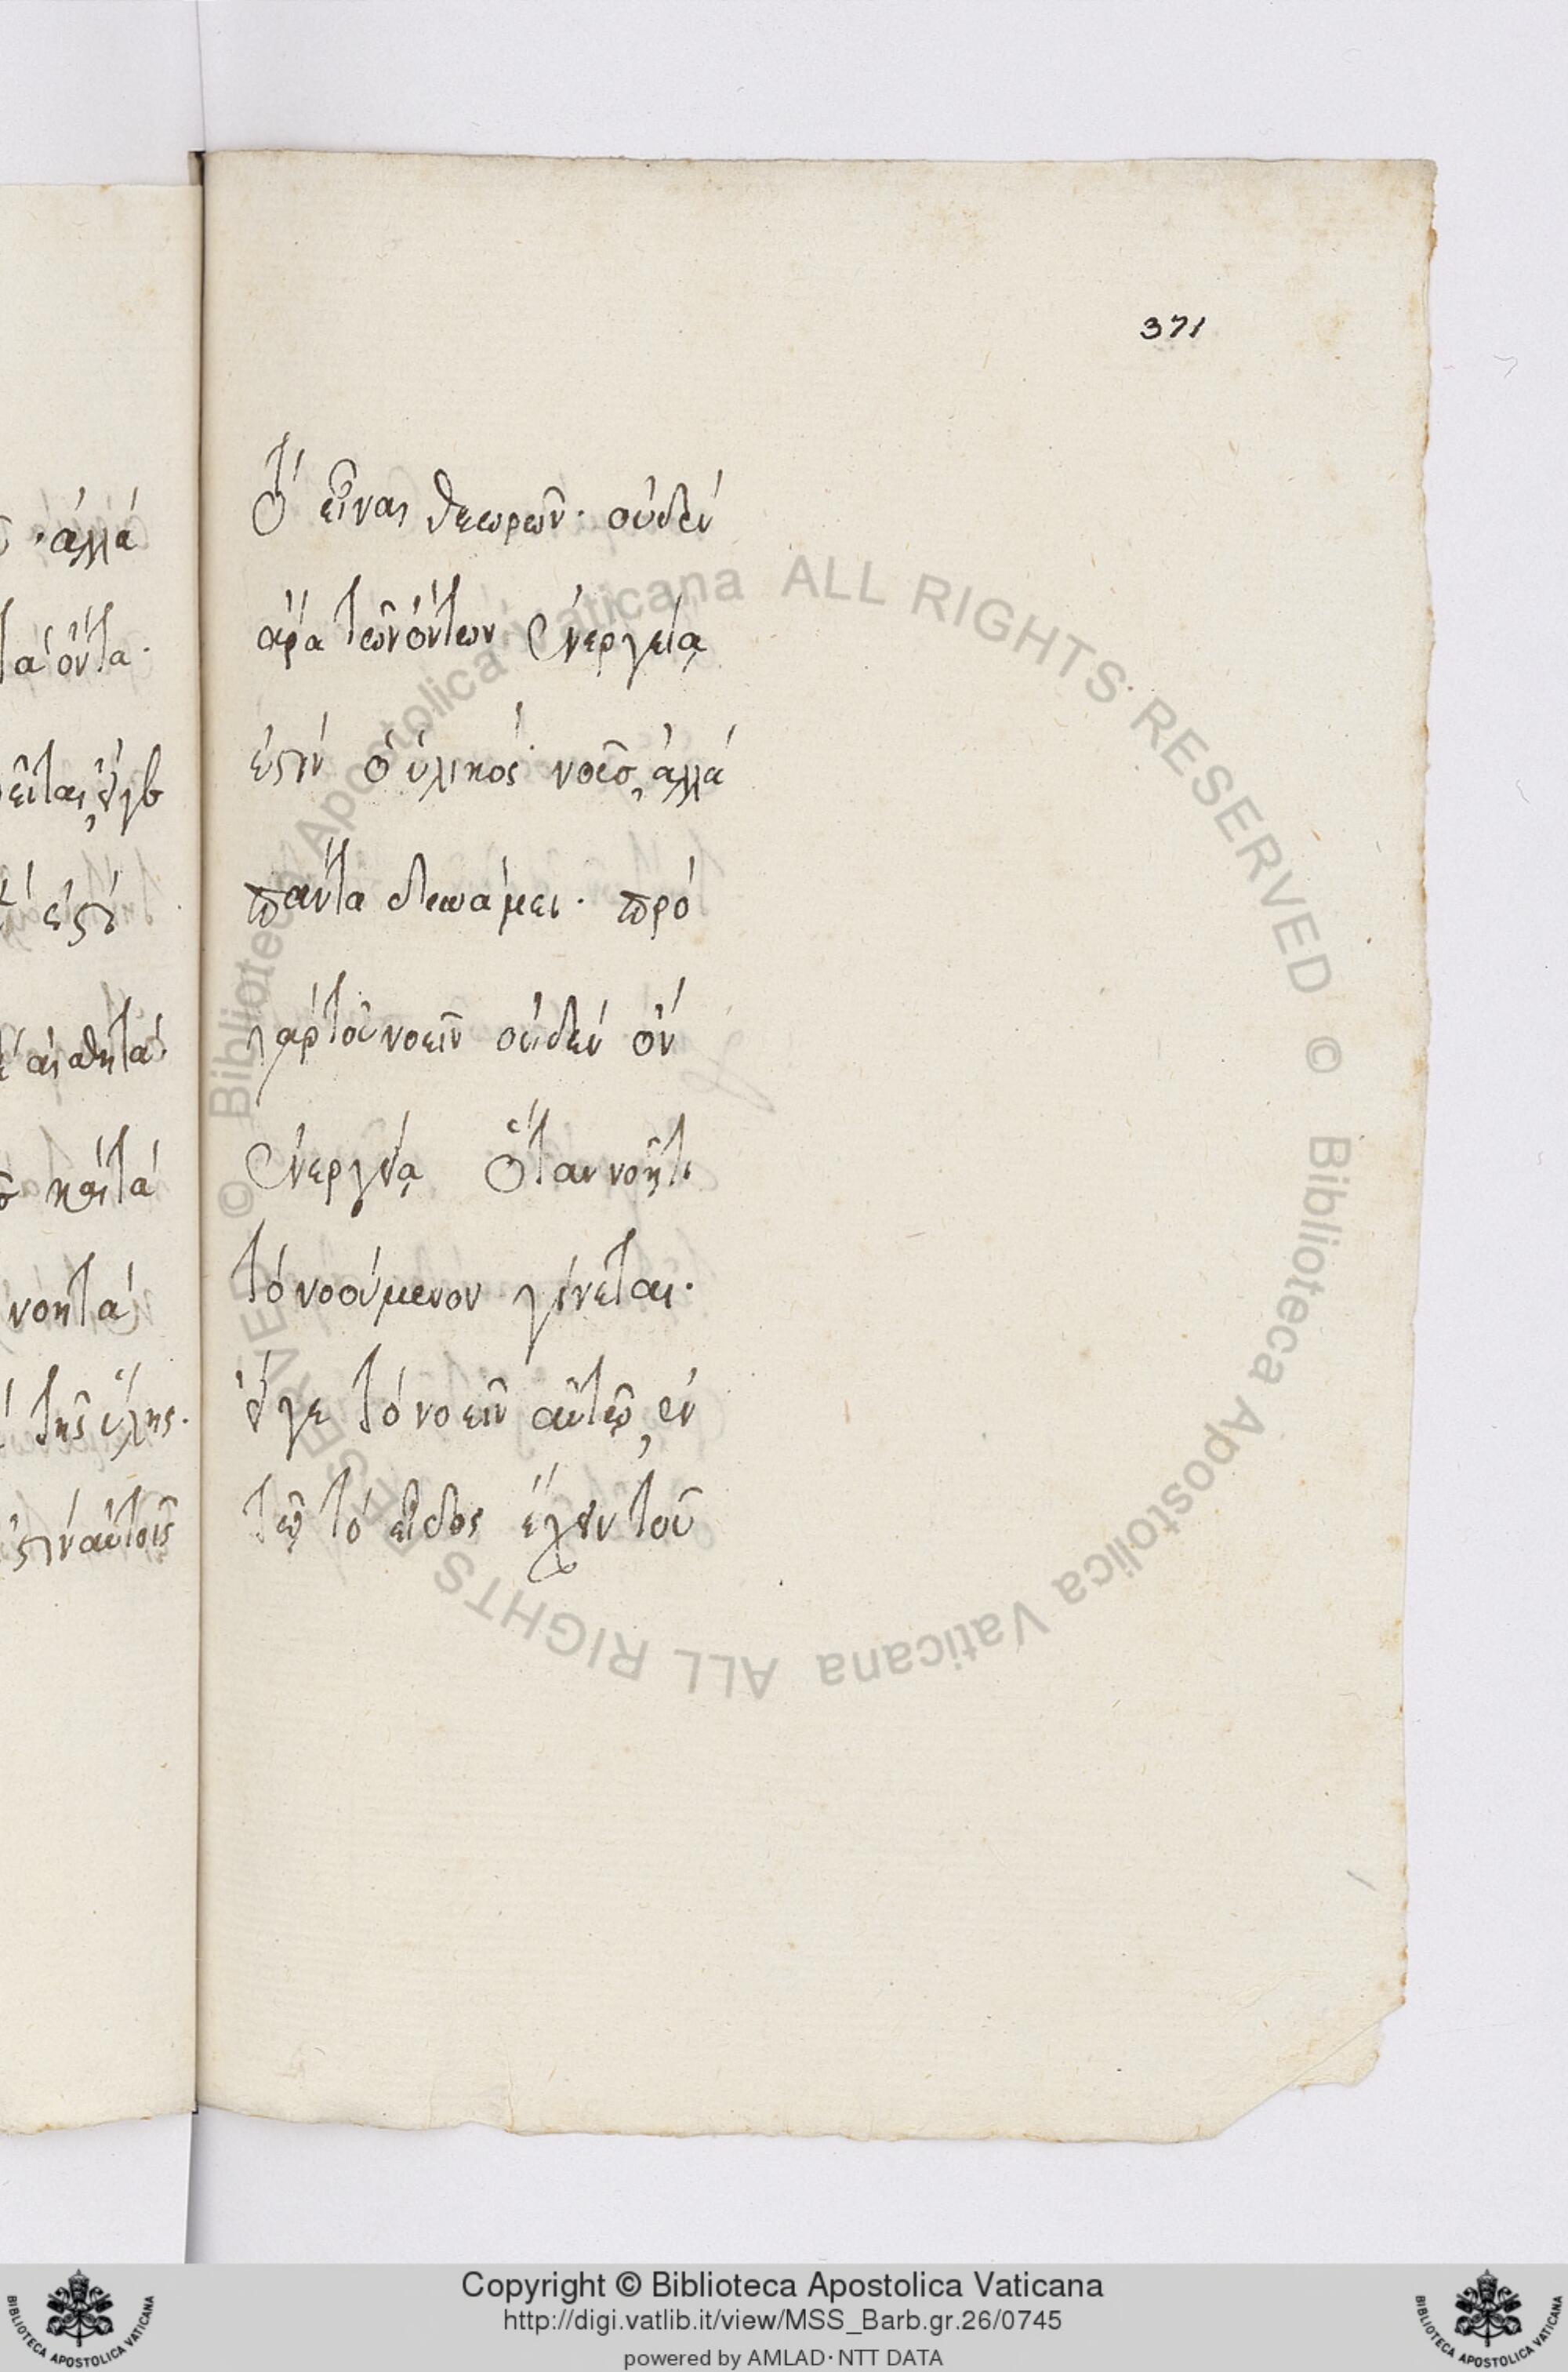 371
ἀλλὰ
τὰ ὄντα·
εῖται, εἴγε
ἐστὶ
αἰσθητὰ·
καὶ τὰ
νοητὰ
τῆς ὕλης·
ἐστὶν αὐτοῖς
τί εἶναι θεωρῶν· οὐδὲν
ἄρα τῶν ὄντων ἐνεργείᾳ
ἐστὶν ὁ ὑλικὸς νοῦς, ἀλλὰ
πάντα δυνάμει· πρὸ
γὰρ τοῦ νοεῖν οὐδὲν ὂν
ἐνεργείᾳ ὅταν νοῇ τι
τὸ νοούμενον γίνεται·
εἴγε τὸ νοεῖν αὐτῷ, ἐν
τῷ τὸ εἶδος ἔχειν τοῦ
© Biblioteca Apostolica Vaticana ALL RIGHTS RESERVED © Biblioteca Apostolica Vaticana ALL RIGHTS RESERVED
Copyright © Biblioteca Apostolica Vaticana
http://digi.vatlib.it/view/MSS_Barb.gr.26/0745
powered by AMLAD·NTT DATA
BIBLIOTECA APOSTOLICA VATICANA
BIBLIOTECA APOSTOLICA VATICANA